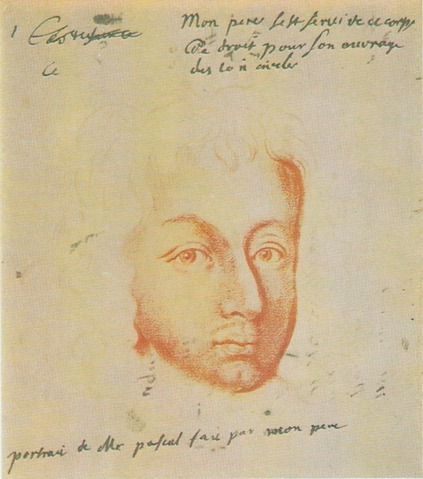 1
Mon pere sest servi de ce corps
De droit pour son ouvrage
Ce
des loix civiles
portrait de Mr pascal fait par mon pere